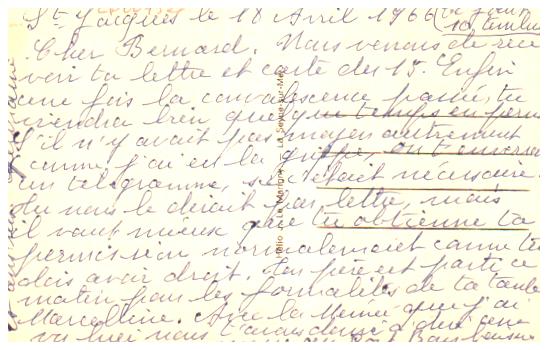 St Jacques le 18 Avril 1966
Cher Bernard. Nous venons de rece
voir ta lettre et carte du 15. Enfin
une fois la convalescence passée, tu
viendra bien quelque temps en perm
S'il n'y avait pas moyen autrement
comme j'ai eu la grippe, on t'enverra
un telegramme, si c'était nécéssaire.
Tu nous le dirait par lettre, mais
il vaut mieux que tu obtienne ta
permission normalement comme tu
dois avoir droit. Ton père est parti ce
matin pour les formalités de ta tante
Marcelline. Avec la Mémé que j'ai
vu hier nous
Hélio "La Marine" - La Seyne-sur-Mer